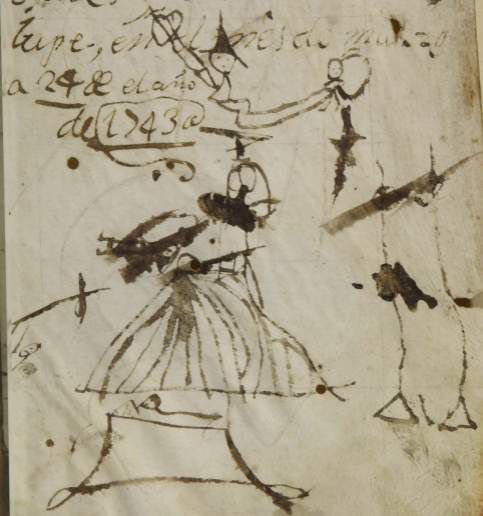 tupe, en el mes de marzo
a 24 de el año
de 1743 a